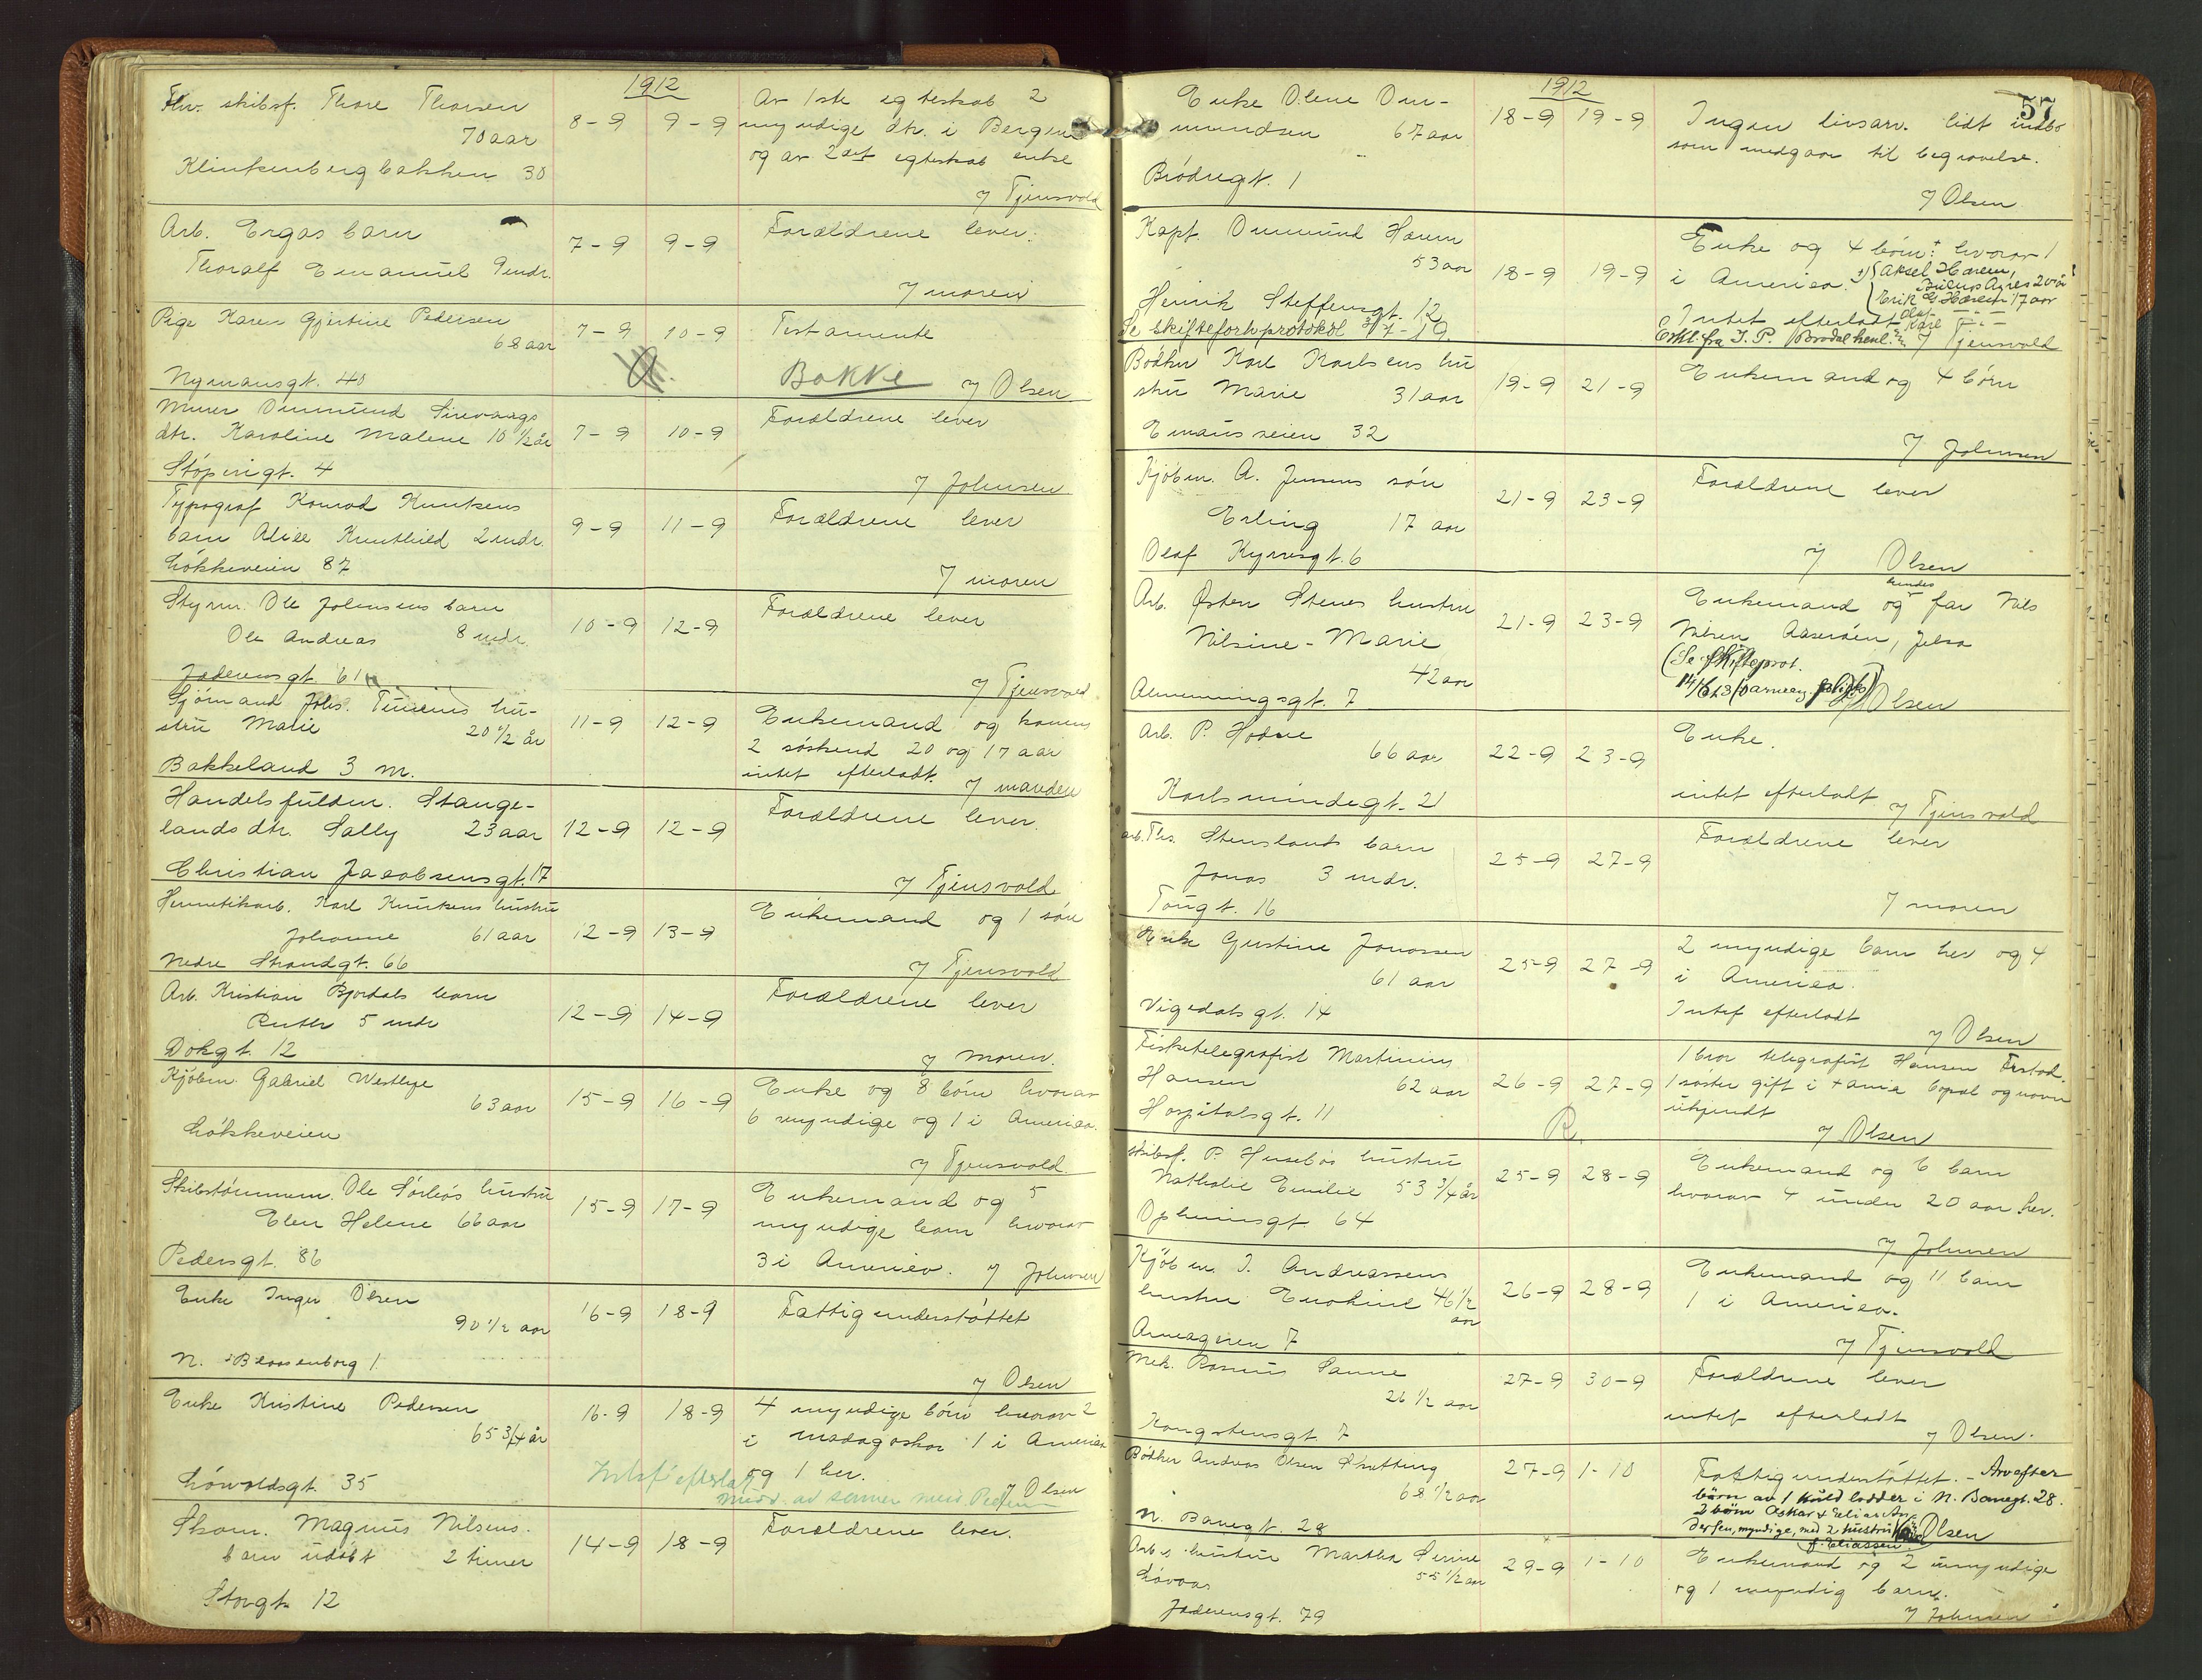 1912
Fhv. skibsf. Thore Thorsen
70 aar
Klinkenbergbakken 30
8-9 9-9
Av 1ste egteskab 2
myndige dtr. i Bergen
og av 2det egteskab enke
Tjensvold
Arb. Ergas barn
Thoralf Emanuel 9 mdr.
7-9 9-9
Forældrene lever.
moren
Pige Karen Gjertine Pedersen
68 aar
Nymansgt. 40
7-9 10-9
Testamente
Bakke
Olsen
Murer Ommund Sirevaags
dtr. Karoline Malene 10 1/2 år
Støperigt. 4
7-9 10-9
Forældrene lever
Johnsen
Typograf Konrad Knutsens
barn Alise 2 mdr.
Løkkeveien 87
9-9 11-9
Forældrene lever
moren
Styrm. Ole Johnsens barn
Ole Andreas 8 mdr.
Jæderensgt. 61
10-9 12-9
Forældrene lever
Tjensvold
Sjømand Johs. hu-
stru Marie 20 1/2 år
Bakkeland 3 m.
11-9 12-9
Enkemand og konens
2 søskend 20 og 17 aar
intet efterladt.
manden
Handelsfuldm. Stange-
lands dtr. Sally 23 aar
Christian Jacobsensgt. 17
12-9 12-9
Forældrene lever.
Tjensvold
Hermetikarb. Karl Knutsens hustru
Johanne 61 aar
Nedre Strandgt. 66
12-9 13-9
Enkemand og 1 søn
Tjensvold
Arb. Kristian Bjordals barn
Ruth 5 mdr
Dokgt. 12
12-9 14-9
Forældrene lever
moren.
Kjøbm. Gabriel Westbye
63 aar
Løkkeveien
15-9 16-9
Enke og 8 børn hvorav
6 myndige og 1 i Amerika.
Tjensvold.
Skibstømmerm. Ole Sørbøs hustru
Elen Helene 66 aar
Pedersgt. 86
15-9 17-9
Enkemand og 5
myndige barn hvorav
3 i Amerika.
Johnsen
Enke Inger Olsen
90 1/2 aar
N. Blaasenborg 1.
16-9 18-9
Fattigunderstøttet
Olsen
Enke Kristine Pedersen
65 3/4 år
Løwoldsgt. 35
16-9 18-9
4 myndige børn hvorav 2
i Madagaskar 1 i Amerika
og 1 her.
Intet efterladt
Olsen
Skom. Magnus Nilsens.
barn udøbt 2 timer
Storgt. 12
14-9 18-9
Forældrene lever.
57
1912
Enke Olene Om-
mundsen 67 aar
Brødregt. 1
18-9 19-9
Ingen livsarv. lidt indbo
som medgaar til begravelse.
Olsen
Kapt. Ommund Harem
53 aar
Henrik Steffensgt. 12
Se skifteforh.protokol 3/7-19.
18-9 19-9
Enke og 4 børn + hvorav 1
i Amerika.
Aksel Harem,
Buenos Ayres
Erik 17 aar
Olaf
Karl
Intet efterladt
Erkl. fra I. P.
Tjensvold
Bødker Karl Karlsens hu
stru Marie 31 aar
Emausveien 32
19-9 21-9
Enkemand og 4 børn
Johnsen
Kjøbm. A. Jensens søn
Erling 17 aar
Olaf Kyrresgt. 6
21-9 23-9
Forældrene lever
Olsen
Arb. Østen Stenes hustru
Nilsine-Marie
42 aar
Almenningsgt. 7
21-9 23-9
Enkemand og hendes far Nils
Nilsen, Jelsa
(Se skifteprot.
Olsen
Arb. P. Hodne
66 aar
Karlsmindegt. 21
22-9 23-9
Enke.
intet efterladt
Tjensvold
arb. Ths. Stenslands barn
Jonas 3 mdr.
Taugt. 16
25-9 27-9
Forældrene lever
moren
Enke Gustine Jonassen
61 aar
Vigedalsgt. 14
25-9 27-9
2 myndige barn her og 4
i Amerika.
Intet efterladt
Olsen
Fisketelegrafist Martinius
Hansen 62 aar
Hospitalsgt. 11
26-9 27-9
R.
1 bror telegrafist Hansen
1 søster gift i bopæl og navn
ukjendt
Olsen
skibsf. P. Husebøs hustru
Nathalie Emilie 53 3/4 år
Opheimsgt. 64
25-9 28-9
Enkemand og 6 barn
hvorav 4 under 20 aar her.
Johnsen
Kjøbm. I. Andreassens
hustru Enokine 46 1/2
aar
Armageren 7
26-9 28-9
Enkemand og 11 barn
1 i Amerika.
Tjensvold
Mek. Rasmus Sanne
26 1/2 aar
Kongstensgt. 7
27-9 30-9
Forældrene lever
intet efterladt
Olsen.
Bødker Andreas Olsen Skutting
68 1/2 aar
N. Banegt. 28
27-9 1-10
Fattigunderstøttet. - Arv efter
børn av 1 kuld lodder i N. Banegt. 28.
2 børn Oskar & Elias An-
dersen, myndige, med 2 hustru
f. Eliassen.
Olsen
Arb.s hustru Martha Serine
Løvaas 55 1/2 aar
Jæderensgt. 79
29-9 1-10
Enkemand og 2 umyndige
og 1 myndig barn.
Johnsen